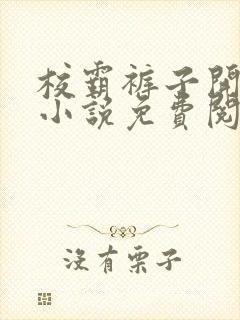 校霸裤子開
小說免費閱
沒有栗子